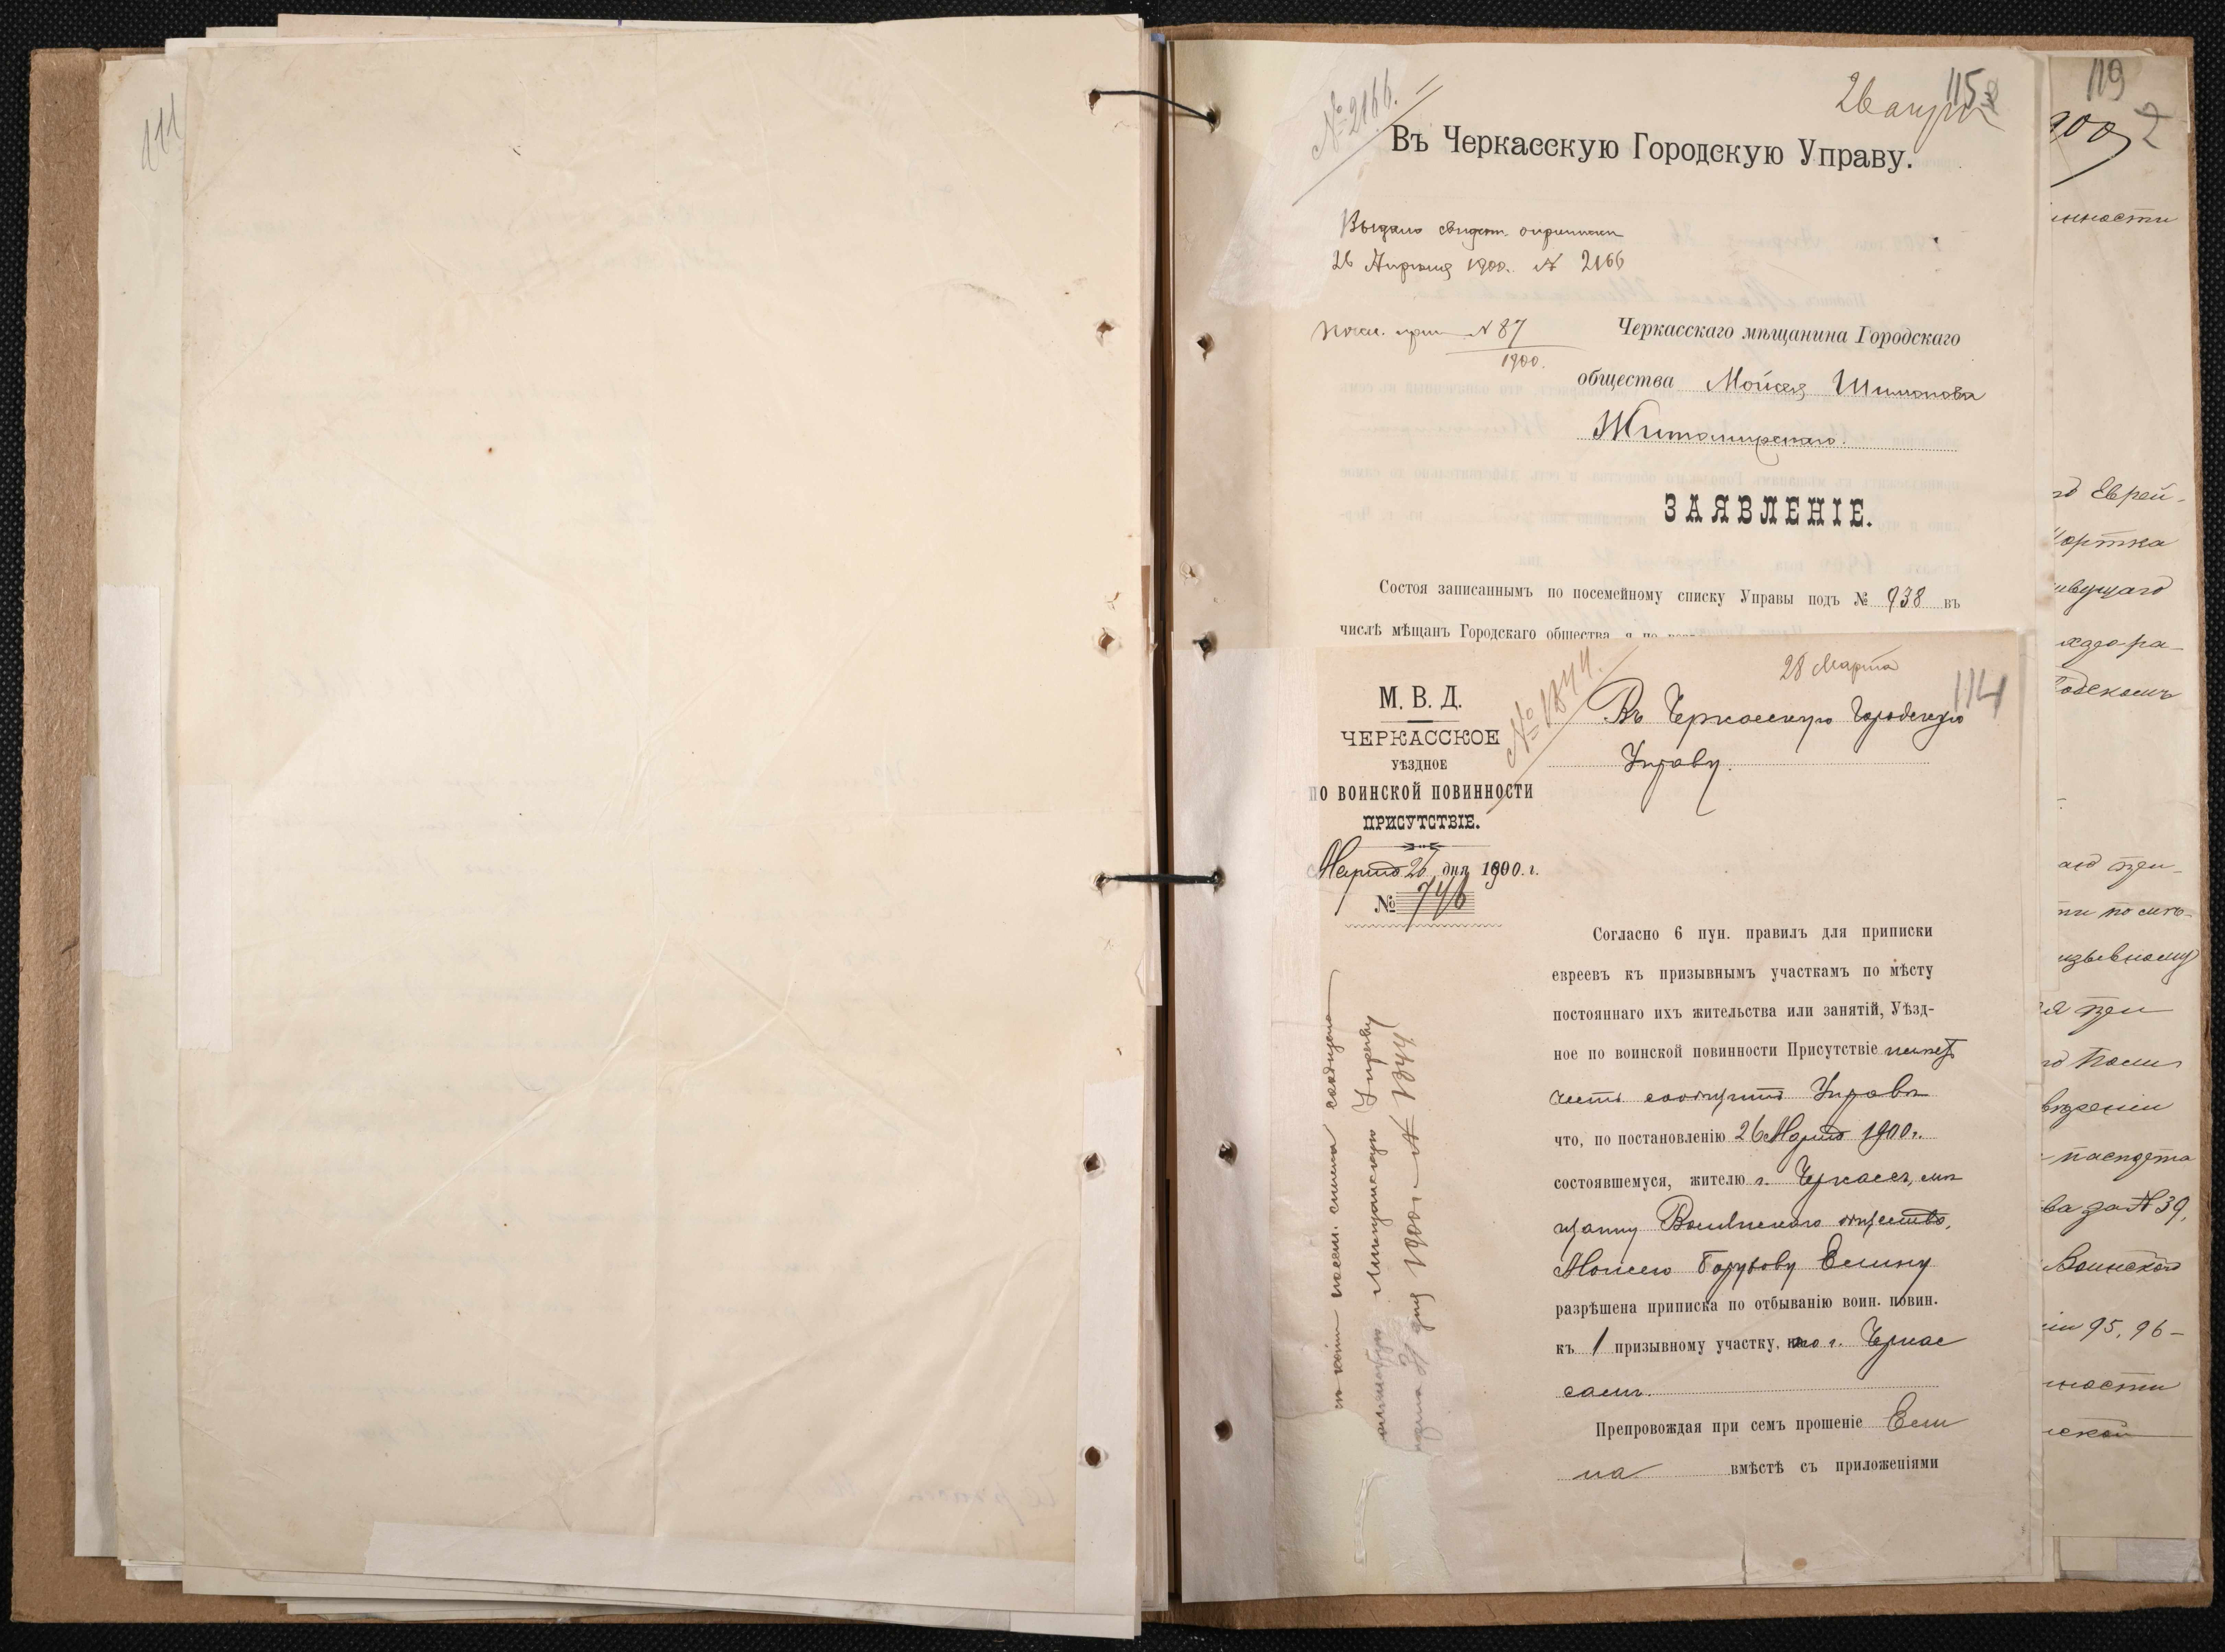 111
№ 2166.
26 апрѣл
115
Въ Черкасскую Городскую Управу.
Выдано свидѣт. о приписки
26 Апрѣля 1900. № 2166
№ 87
1900.
Черкасскаго мѣщанина Городскаго
общества Мойсея Шимонова
Житомирскаго.
ЗАЯВЛЕНІЕ.
Состоя записаннымъ по посемейному списку Управы подъ № 938 въ
числѣ мѣщанъ Городскаго общества, я по
28 Марта
114
№ 1844.
М. В. Д.
ЧЕРКАССКОЕ
УѢЗДНОЕ
ПО ВОИНСКОЙ ПОВИННОСТИ
ПРИСУТСТВІЕ.
Марта 26 дня 1900 г.
№ 746
Въ Черкасскую Городскую
Управу.
Согласно 6 пун. правилъ для приписки
евреевъ къ призывнымъ участкамъ по мѣсту
постояннаго ихъ жительства или занятій, Уѣзд-
ное по воинской повинности Присутствіе имѣетъ
честь сообщить Управѣ
что, по постановленію 26 Марта 1900 г.
состоявшемуся, жителю г. Черкассъ, мѣ
щанину общества,
Моисею Борухову Елину
разрѣшена приписка по отбыванію воин. повин.
къ 1 призывному участку, г. Черкас
самъ.
Препровождая при семъ прошеніе Ели
на вмѣстѣ съ приложеніями
посем. списка сообщено
Управу
1900 г. № 1844
119
900
нности
Еврей-
ортка
ивущаго
при-
по мѣ-
изывному
при
ва за № 39,
Воинскаго
95, 96-
ности